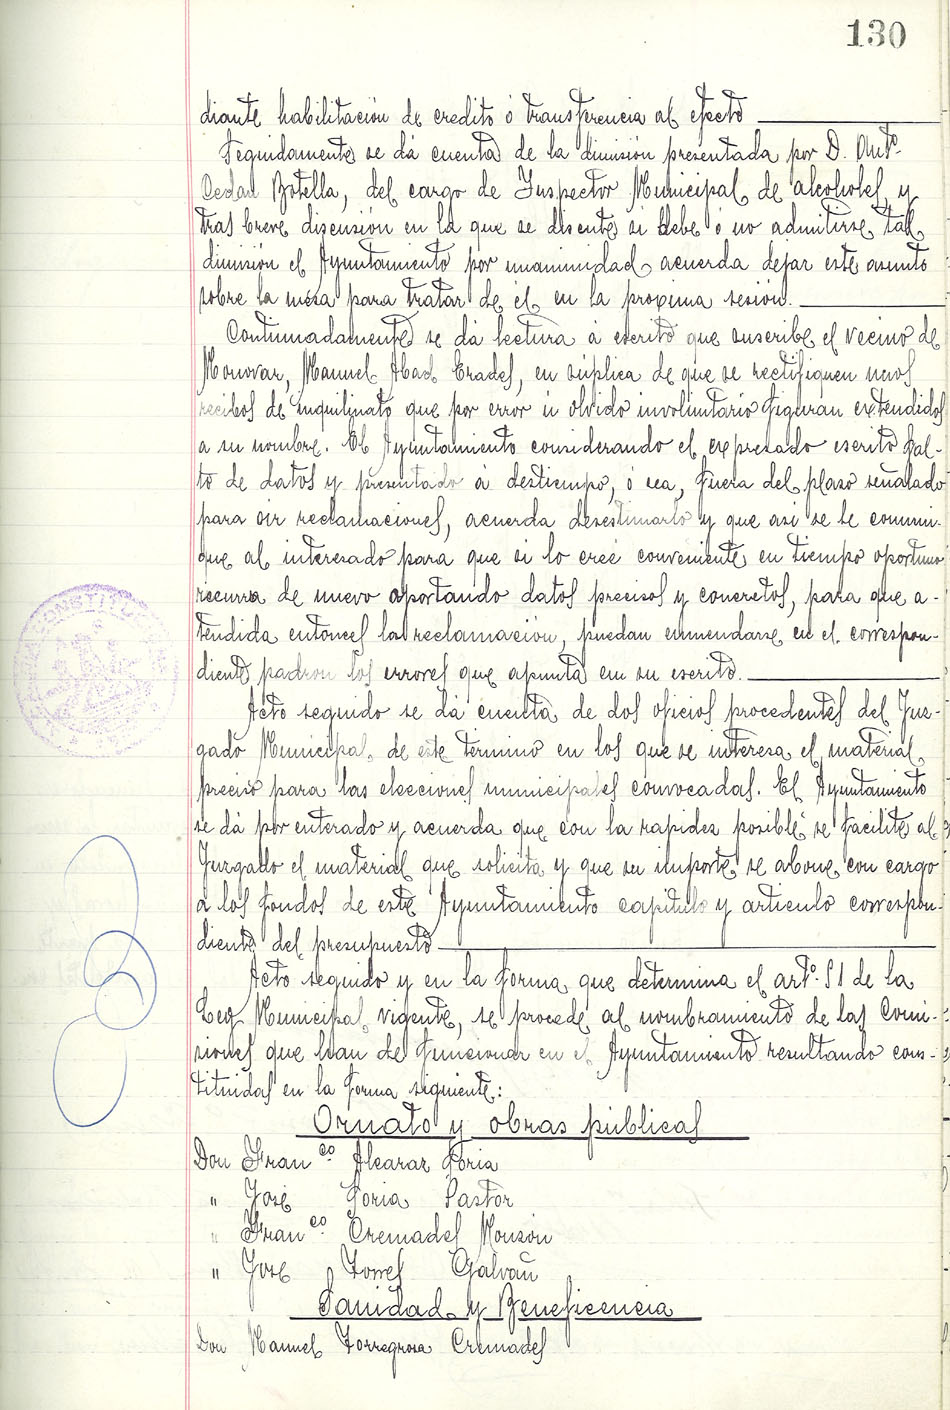 130
diante habilitación de credito ó transferencia al efecto
Seguidamente se dá cuenta de la dimisión presentada por D. Antº.
Cerdan Botella, del cargo de Inspector Municipal de alcoholes, y
tras breve discusión en la que se discute si debe ó no admitirse tal
dimisión el Ayuntamiento por unanimidad acuerda dejar este asunto
sobre la mesa para tratar de él en la proxima sesión.
Continuadamente se dá lectura á escrito que suscribe el vecino de
Monovar, Manuel Abad Erades, en súplica de que se rectifiquen unos
recibos de inquilinato que por error ú olvido involuntario figuran extendidos
a su nombre. El Ayuntamiento considerando el expresado escrito fal-
to de datos y presentado á destiempo, ó sea, fuera del plaso señalado
para oir reclamaciones, acuerda desestimarlo y que asi se le comuni-
que al interesado para que si lo creé conveniente en tiempo oportuno
recurra de nuevo aportando datos precisos y concretos, para que a-
tendida entonces la reclamación, puedan enmendarse en el correspon-
diente padron los errores que apunta em su escrito.
Acto seguido se dá cuenta de dos oficios procedentes del Juz-
gado Municipal de este termino en los que se interesa el material
preciso para las elecciones municipales convocadas. El Ayuntamiento
se dá por enterado y acuerda que con la rapidez posible se facilite al
Juzgado el material que solicita y que su importe se abone con cargo
a los fondos de este Ayuntamiento capitulo y articulo correspon-
diente del presupuesto
Acto seguido y en la forma que determina el artº. 51 de la
Ley Municipal vigente, se procede al nombramiento de las Comi-
siones que han de funcionar en el Ayuntamiento resultando cons-
tituidas en la forma siguiente:
Ornato y obras públicas
Don Franco. Alcaraz Soria
" José Soria Pastor
" Franco. Cremades Monsón
" José Torres Galvañ
Sanidad y Beneficencia
Don Manuel Torregrosa Cremades